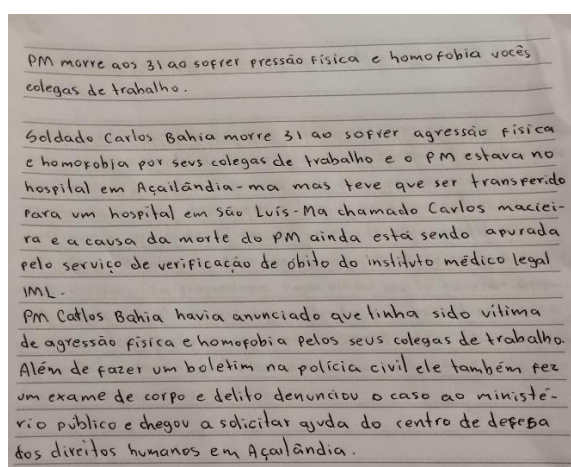 PM morre aos 31 ao sofrer pressão física e homofobia vocês
colegas de trabalho.
Soldado Carlos Bahia morre 31 ao sofrer agressão física
e homofobia por seus colegas de trabalho e o PM estava no
hospital em Açailândia-ma mas teve que ser transferido
para um hospital em são Luís-Ma chamado Carlos maciei-
ra e a causa da morte do PM ainda está sendo apurada
pelo serviço de verificação de óbito do instituto médico legal
IML.
PM Carlos Bahia havia anunciado que tinha sido vítima
de agressão física e homofobia pelos seus colegas de trabalho.
Além de fazer um boletim na polícia civil ele também fez
um exame de corpo e delito denunciou o caso ao ministé-
rio público e chegou a solicitar ajuda do centro de defesa
dos direitos humanos em Açailândia.